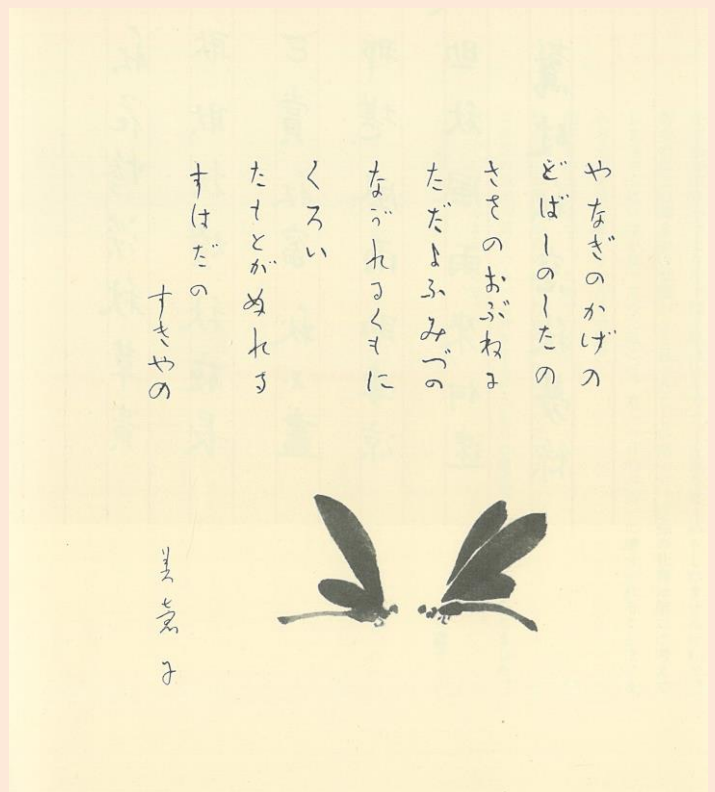 やなぎのかげの
どばしのしたの
ささのおぶねよ
ただよふみづの
ながれるくもに
くろい
たもとがぬれる
すはだの
すきやの
美意子